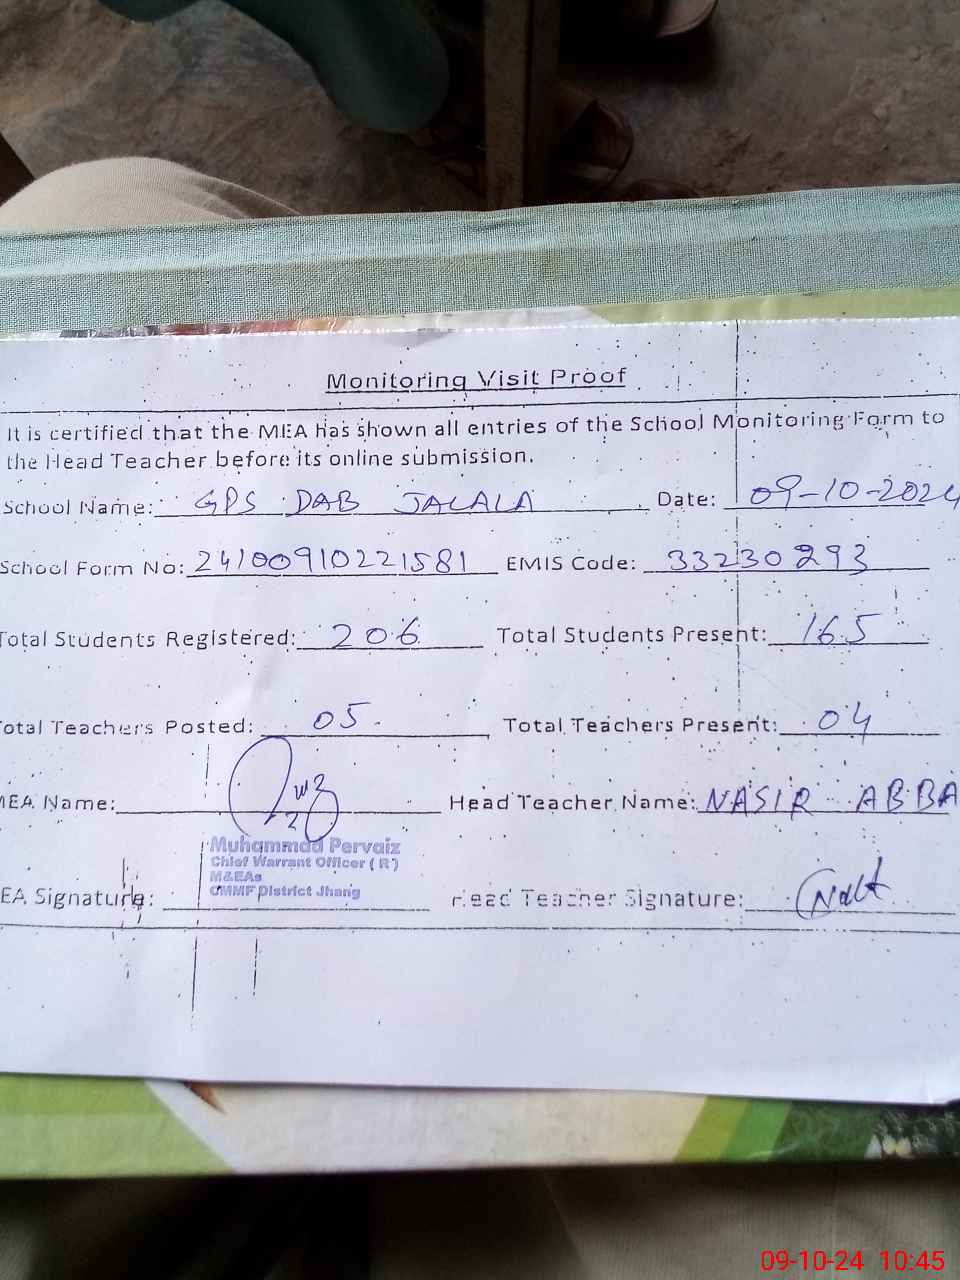 Monitoring Visit Proof
It is certified that the MEA has shown all entries of the School Monitoring Form to
the Head Teacher before its online submission.
School Name: GPS DAB JALALA Date: 09-10-2024
School Form No: 24100910221581 EMIS Code: 33230293
Total Students Registered: 206 Total Students Present: 165
otal Teachers Posted: 05. Total Teachers Present: 04
MEA Name: Head Teacher Name: NASIR ABBA
Muhammad Pervaiz
Chief Warrant Officer ( R )
M&EAs
CMMF District Jhang
EA Signature: Head Teacher Signature:
09-10-24 10:45